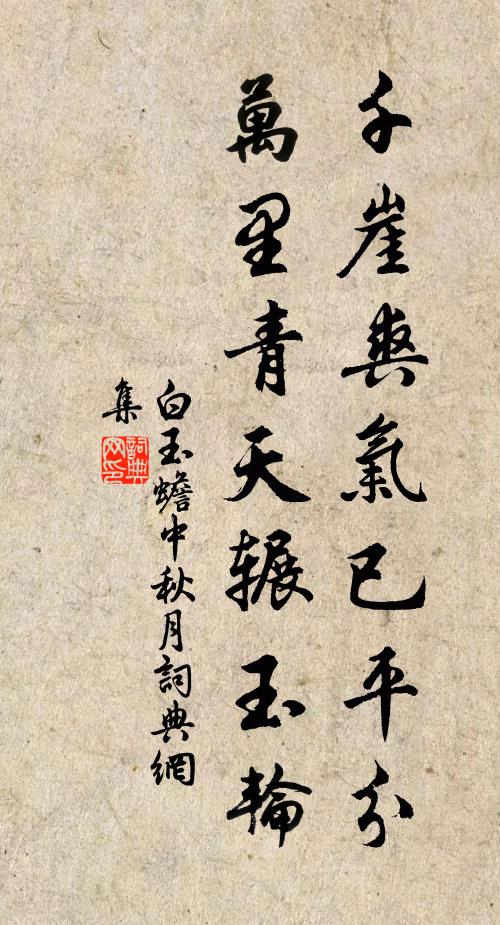 千崖爽氣已平分
萬里青天輾玉輪
白玉蟾中秋月詞典網
集
詞典
网印